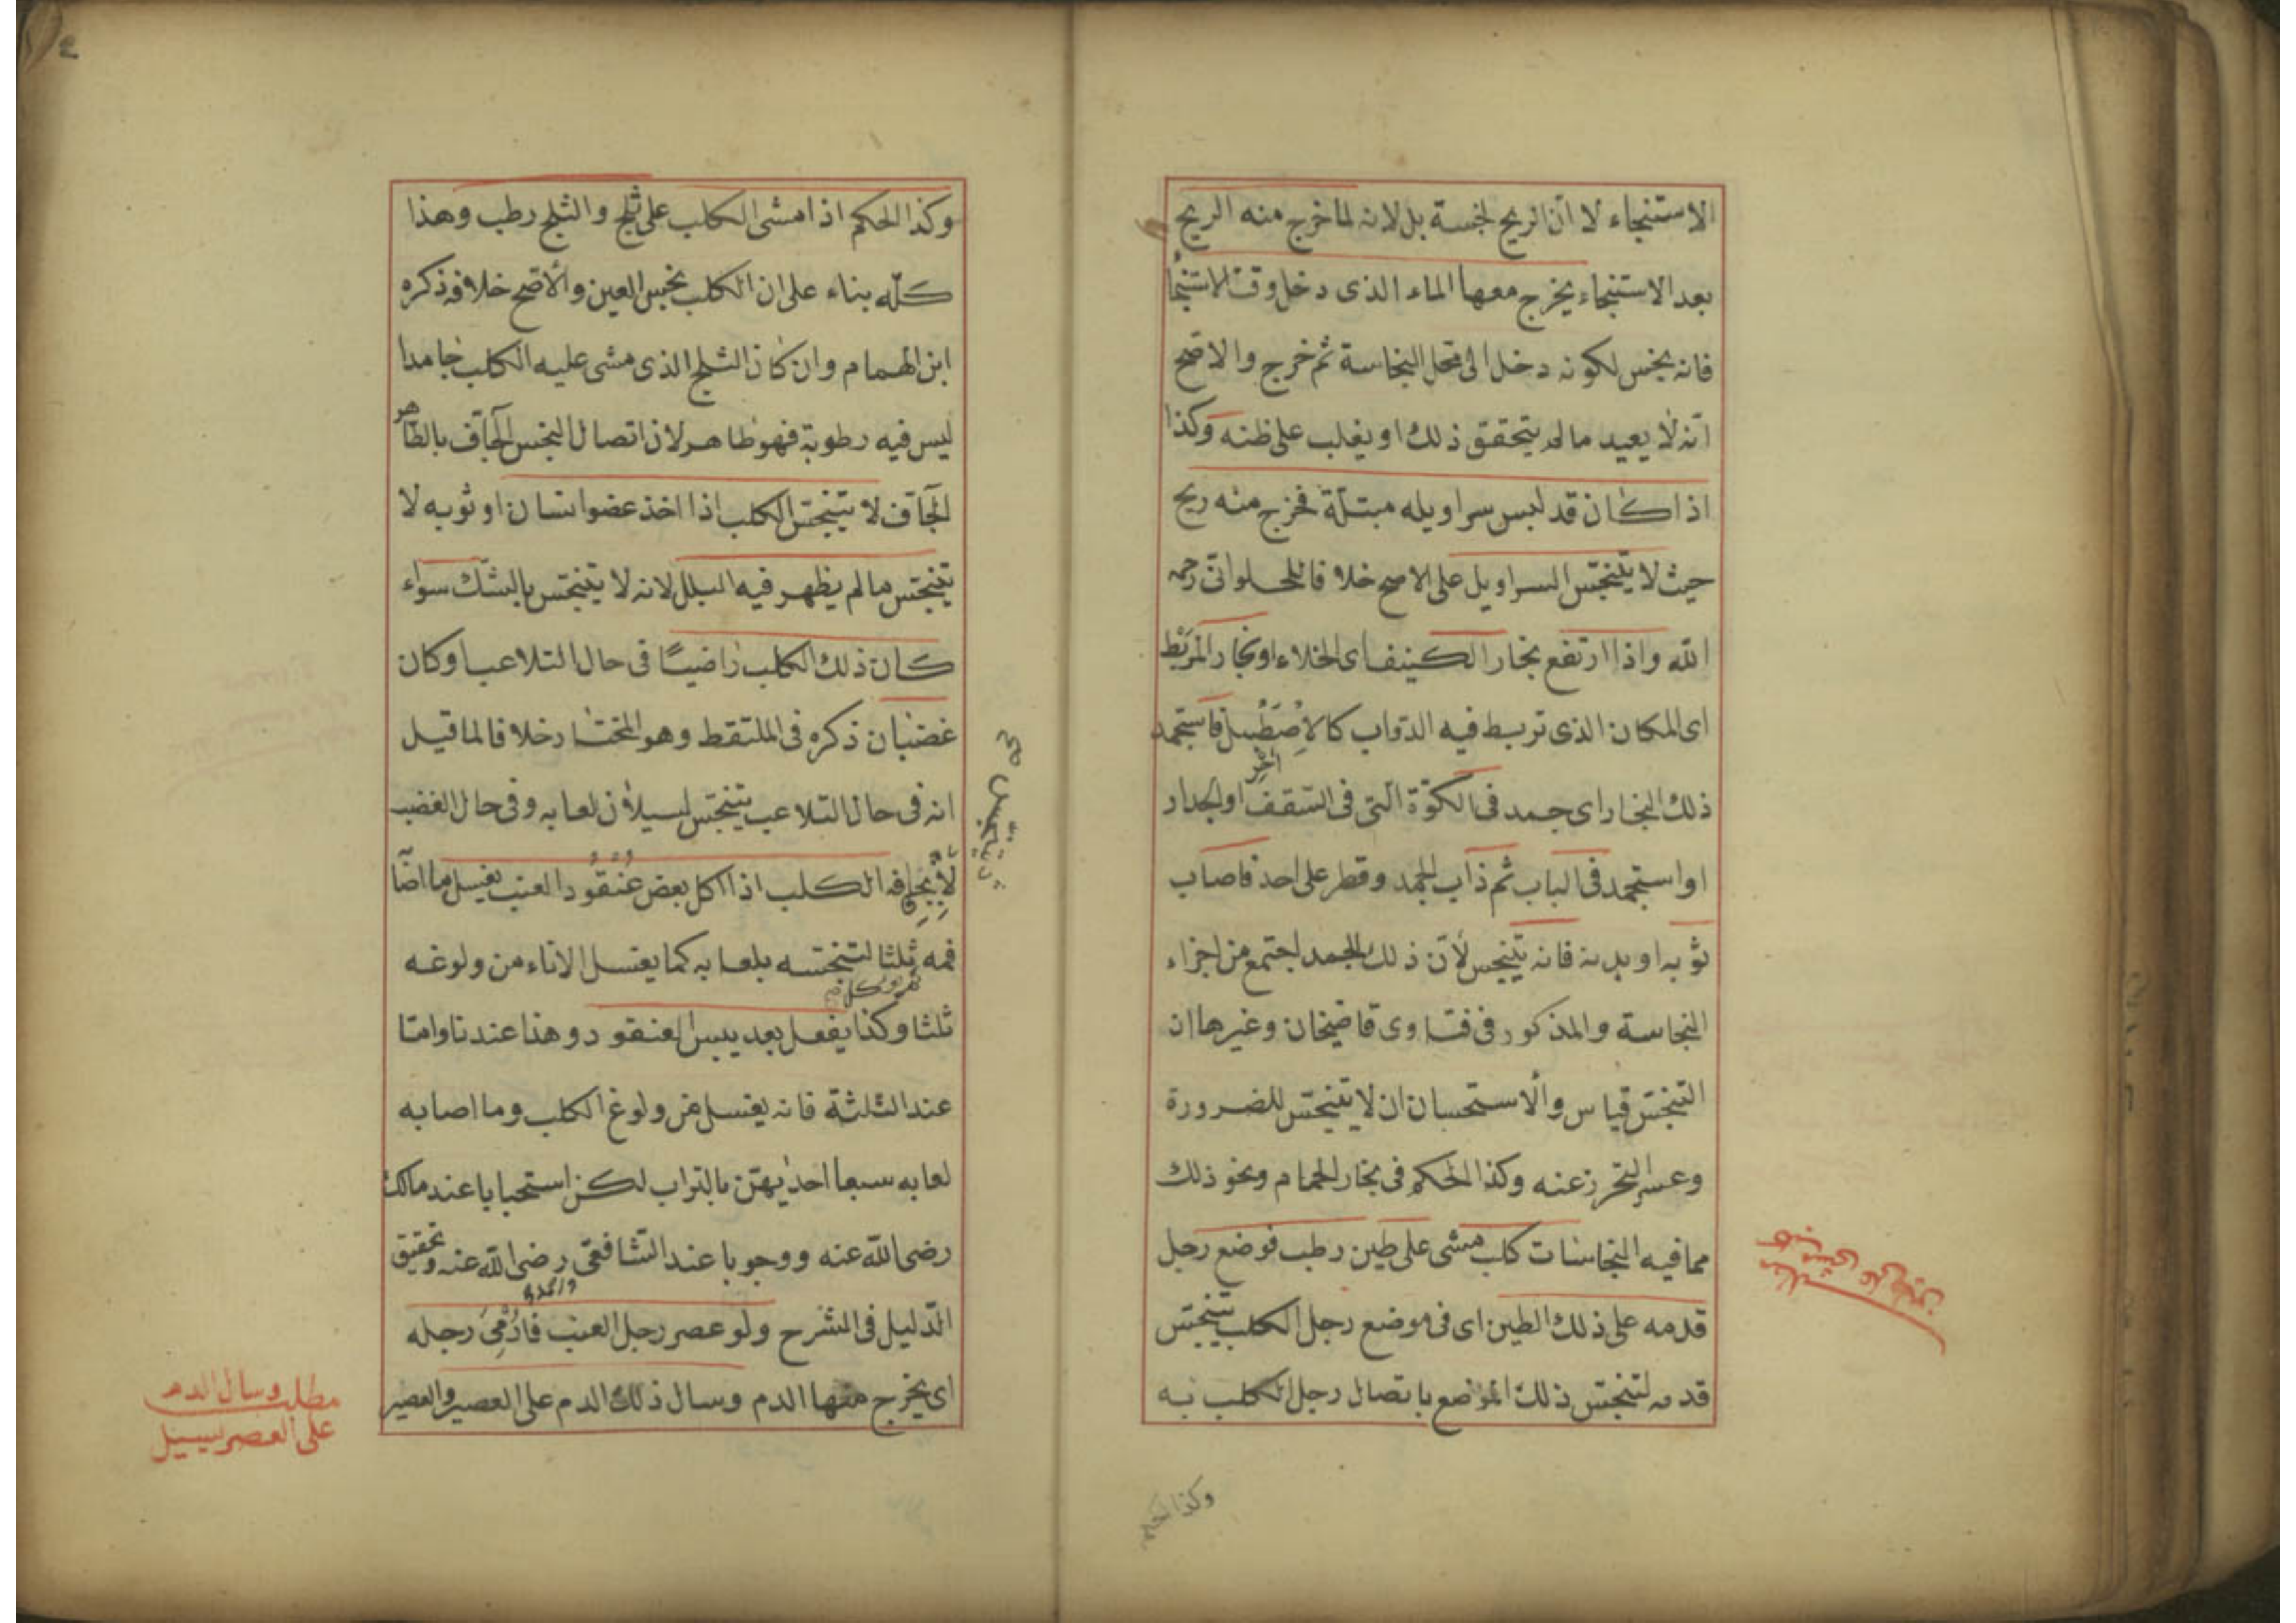 الاستنجاء لا ان الريح نجسة بل لانه لما خرج منه الريح
بعد الاستنجاء يخرج معها الماء الذى دخل وقت الاستنجا
فانه نجس لكونه دخل الى محل النجاسة ثم خرج والاصح
انه لا يعيد مالم يتحقق ذلك او يغلب على ظنه وكذا
اذا كان قد لبس سراويله مبتلة فخرج منه ريح
حيث لا يتنجس السراويل على الاصح خلافا للحلوانى رحمه
الله واذا ارتفع بخار الكنيف اى الخلاء او بخار المربط
اى المكان الذى تربط فيه الدواب كالاصطبل فاستجمد
ذلك البخار اى جمد فى الكوة التى فى السقف او الجدار
او استجمد فى الباب ثم ذاب الجمد وقطر على احد فاصاب
ثوبه او بدنه فانه يتنجس لأن ذلك الجمد اجتمع من اجزاء
النجاسة والمذكور فى فتاوى قاضيخان وغيرها ان
التنجس قياس والاستحسان ان لا يتنجس للضرورة
وعسر التحرز عنه وكذا الحكم فى بخار الحمام ونحو ذلك
مما فيه النجاسات كلب مشى على طين رطب فوضع رجل
قدمه على ذلك الطين اى فى موضع رجل الكلب يتنجس
قدمه لتنجس ذلك الموضع باتصال رجل الكلب به
وكذا الحكم
وكذا الحكم اذا مشى الكلب على ثلج والثلج رطب وهذا
كله بناء على ان الكلب نجس العين والأصح خلافه ذكره
ابن الهمام وان كان الثلج الذى مشى عليه الكلب جامدا
ليس فيه رطوبة فهو طاهر لان اتصال النجس الجاف بالطاهر
الجاف لا يتنجس الكلب اذا اخذ عضو انسان او ثوبه لا
يتنجس مالم يظهر فيه البلل لانه لا يتنجس بالشك سواء
كان ذلك الكلب راضيا فى حال التلاعب او كان
غضبان ذكره فى الملتقط وهو المختار خلافا لما قيل
انه فى حال التلاعب يتنجس لسيلان لعابه وفى حال الغضب
لا فه الكلب اذا اكل بعض عنقود العنب يغسل ما اصا
فمه ثلثا لتنجسه بلعابه كما يغسل الاناء من ولوغه
ثلثا وكذا يفعل بعد يبس العنقود وهذا عندنا واما
عند الثلثة فانه يغسل من ولوغ الكلب وما اصابه
لعابه سبعا احديهن بالتراب لكن استحبابا عند مالك
رضى الله عنه ووجوبا عند الشافعى رضى الله عنه وتحقيق
الدليل فى الشرح ولو عصر رجل العنب فأدمى رجله
اى يخرج منها الدم وسال ذلك الدم على العصير والعصير
مطلب وسال الدم
على العصر يسيل